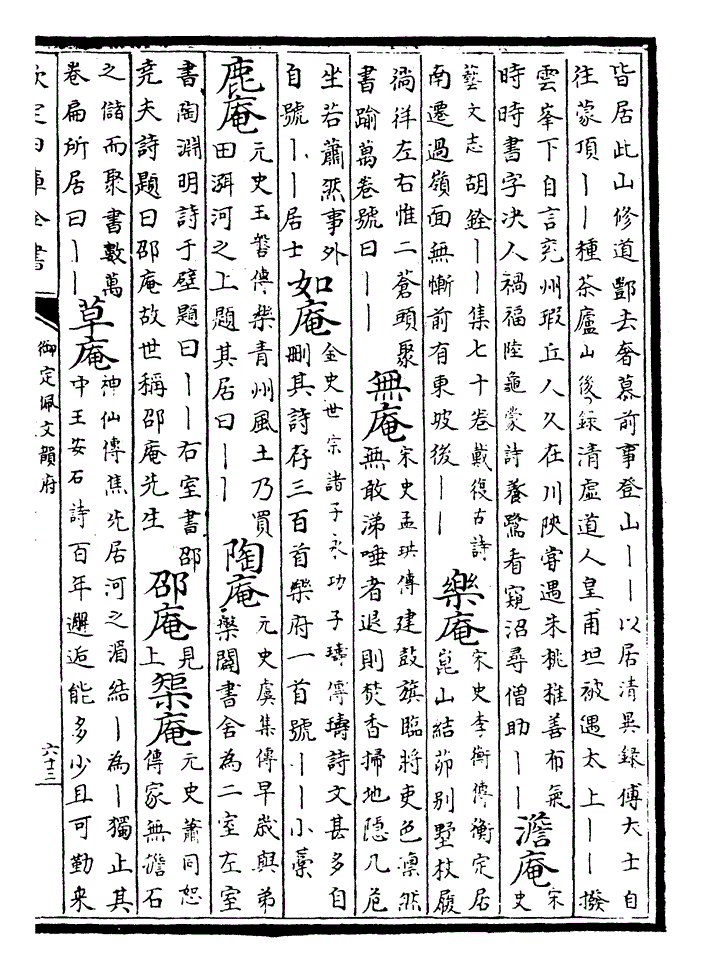 皆居此山修道酆去奢慕前事登山丨丨以居清異録傅大士自
往蒙頂丨丨種茶廬山後録清虚道人皇甫坦被遇太上丨丨撥
雲峯下自言兖州瑕丘人久在川陜嘗遇朱桃椎善布氣
時時書字決人禍福陸龜蒙詩養鷺看窺沼尋僧助丨丨
澹庵
宋
史
藝文志胡銓丨丨集七十卷戴復古詩
南遷過嶺面無慚前有東坡後丨丨
樂庵
宋史李衡傳衡定居
崑山結茆别墅杖屨
徜徉左右惟二蒼頭聚
書踰萬卷號曰丨丨
無庵
宋史孟珙傳建鼓旗臨將吏色凛然
無敢涕唾者退則焚香掃地隠几危
坐若蕭然事外
自號丨丨居士
如庵
金史世宗諸子永功子璹傳璹詩文甚多自
刪其詩存三百首樂府一首號丨丨小藁
鹿庵
元史王磐傳樂青州風土乃買
田渳河之上題其居曰丨丨
陶庵
元史虞集傳早歳與弟
槃闢書舍為二室左室
書陶淵明詩于壁題曰丨丨右室書邵
堯夫詩題曰邵庵故世稱邵庵先生
邵庵
見
上
榘庵
元史蕭同恕
傳家無擔石
之儲而聚書數萬
卷扁所居曰丨丨
草庵
神仙傳焦先居河之湄結丨為丨獨止其
中王安石詩百年邂逅能多少且可勤来
欽定四庫全書
御定佩文韻府
六十三